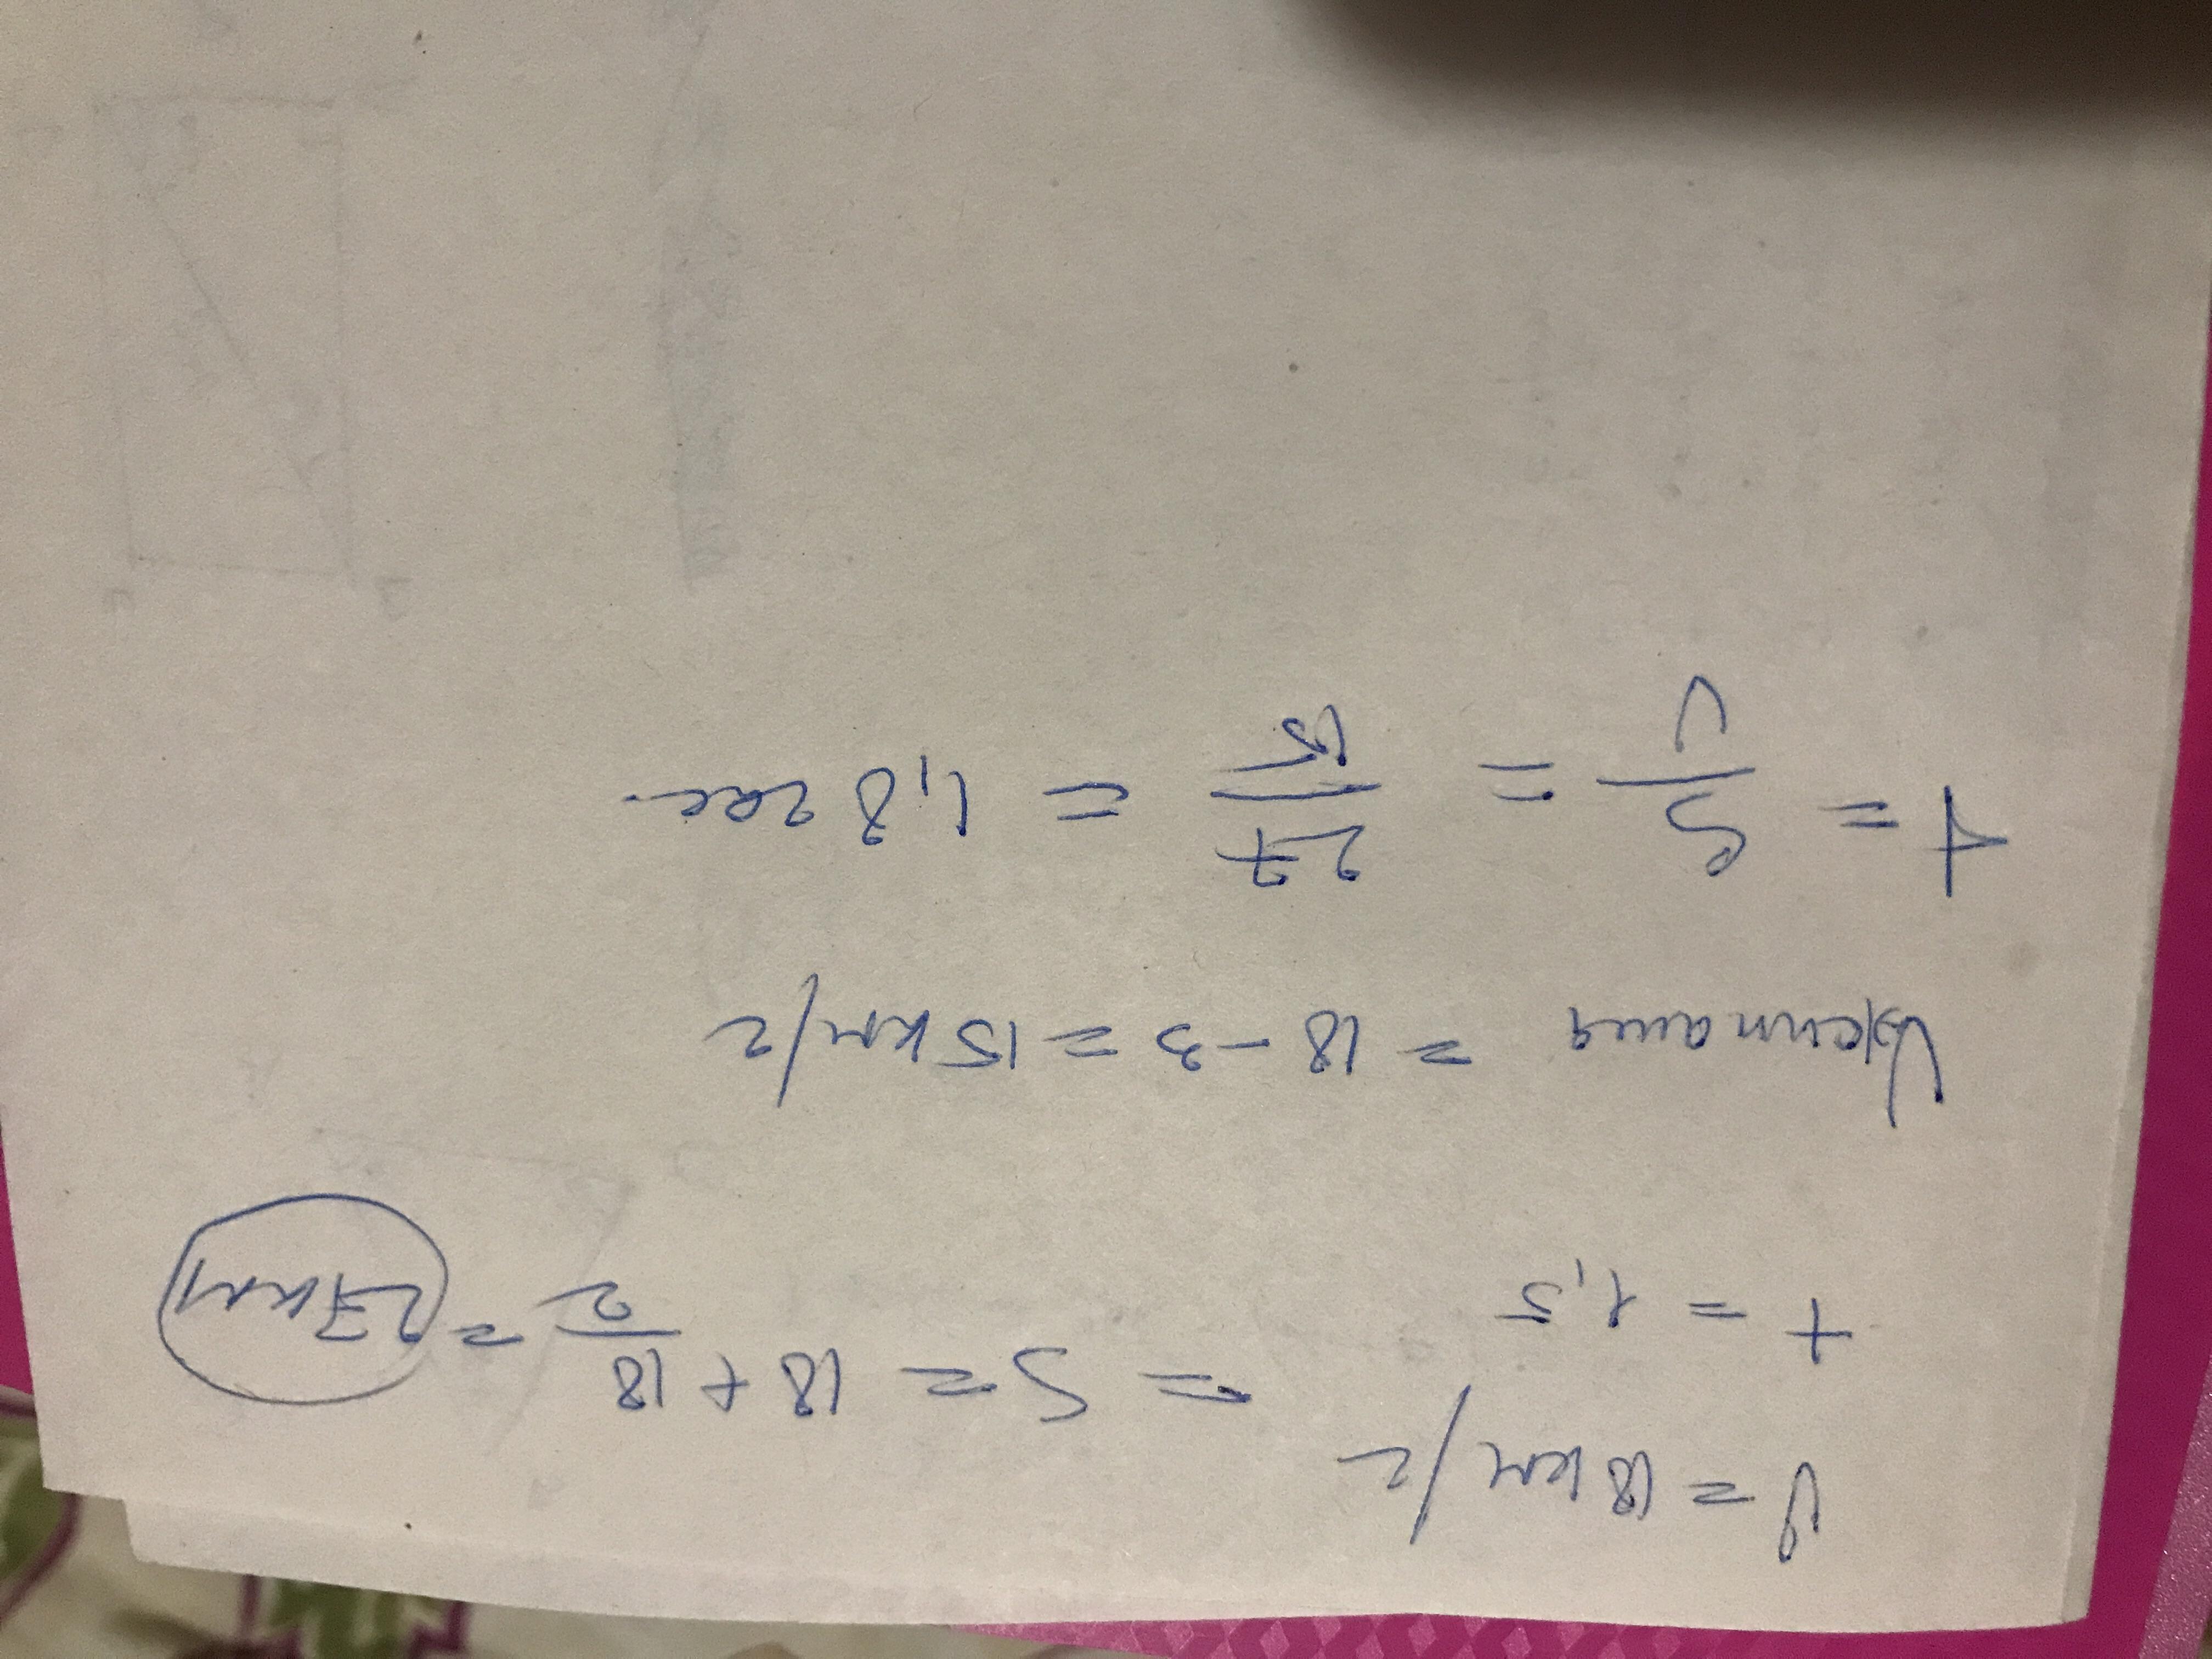 V = 18 км/г
t = 1,5
= S = 18 + 18/2 = 27 км
= 18 - 3 = 15 км/г
t = S/V = 27/15 = 1,8 час.